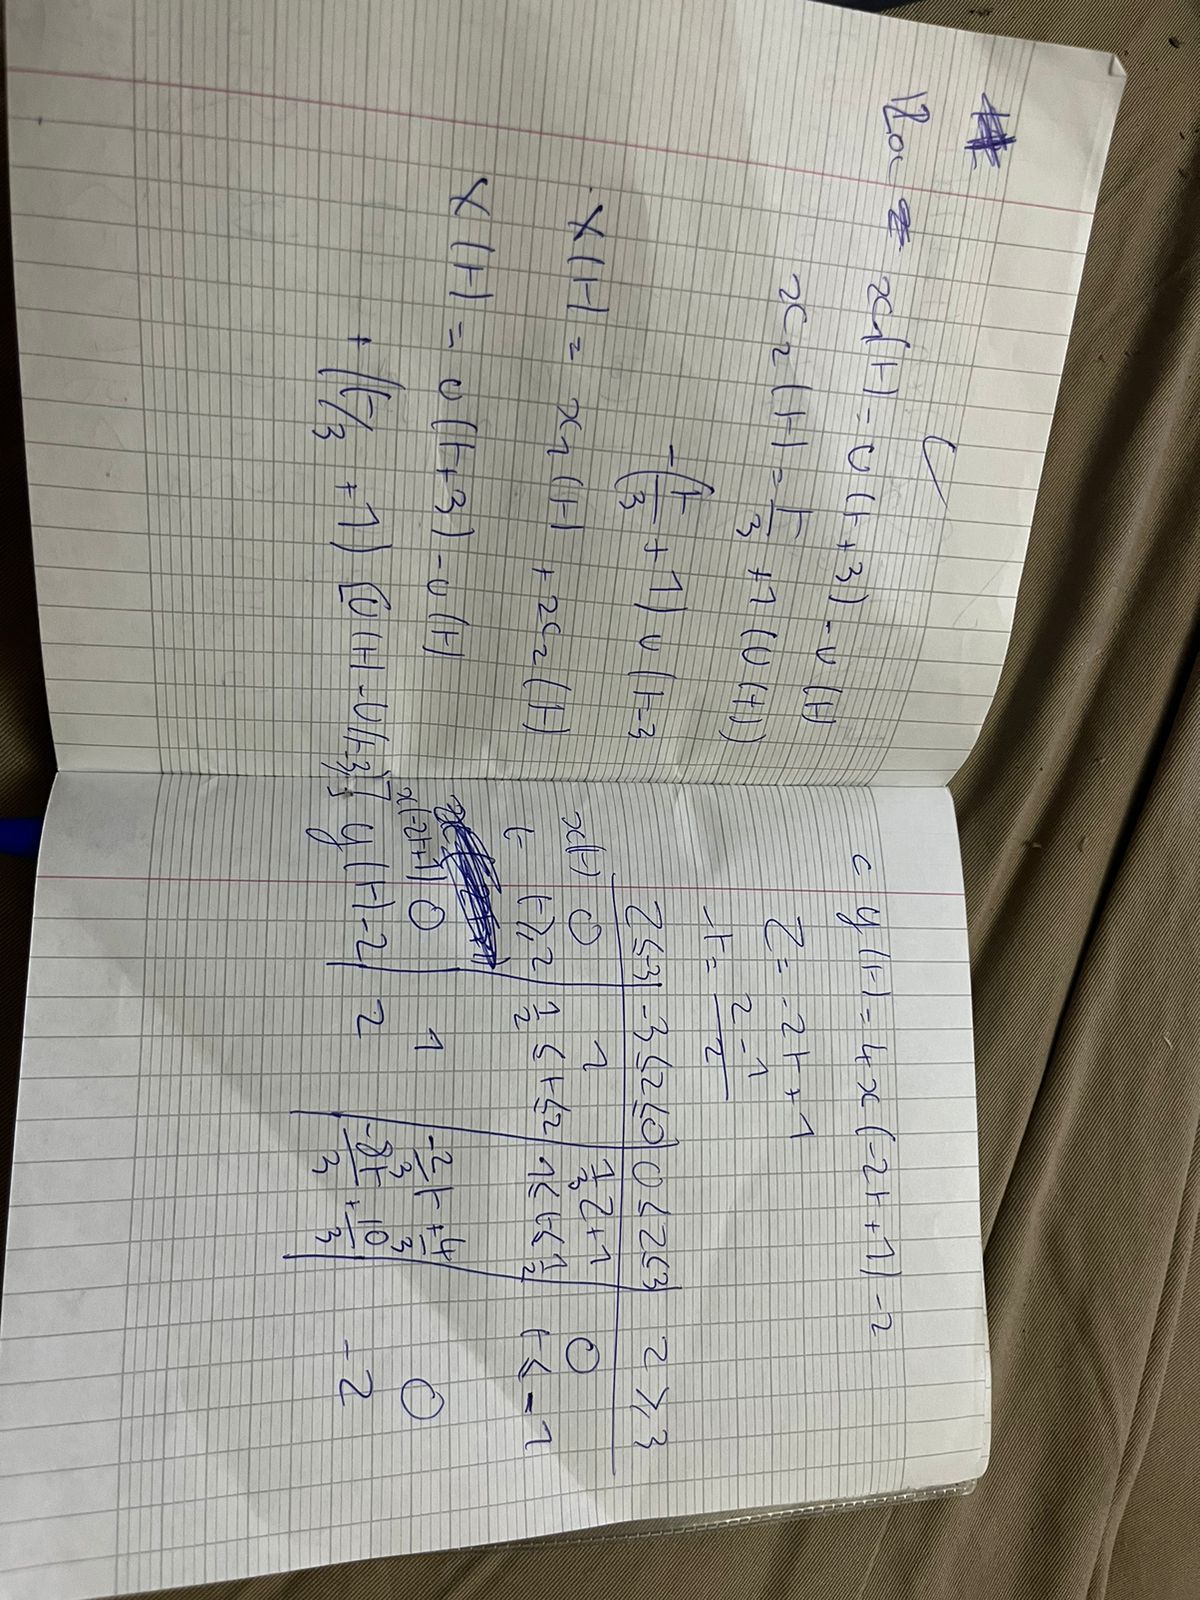 x1(t) = u(t+3) - u(t)
x2(t) = t/3 + 1 (u(t))
-(t/3 + 1) u(t-3
X(t) = x1(t) + x2(t)
X(t) = u(t+3) - u(t)
+ (t/3 + 1) [u(t) - u(t-3)]
c y(t) = 4x(-2t+1) -2
Z = -2t + 1
-t = Z-1/2
Z≤-3 | -3≤Z≤0 | 0≤Z≤3 | Z≥3
x(t) 0 | 1 | 1/3 Z+1 | 0
t t≥2 | 1/2≤t≤2 | -1≤t≤1/2 | t≤-1
x(-2t+1) 0 | 1 | -2/3 t + 4/3 | 0
y(t) -2 | 2 | -8t/3 + 10/3 | -2